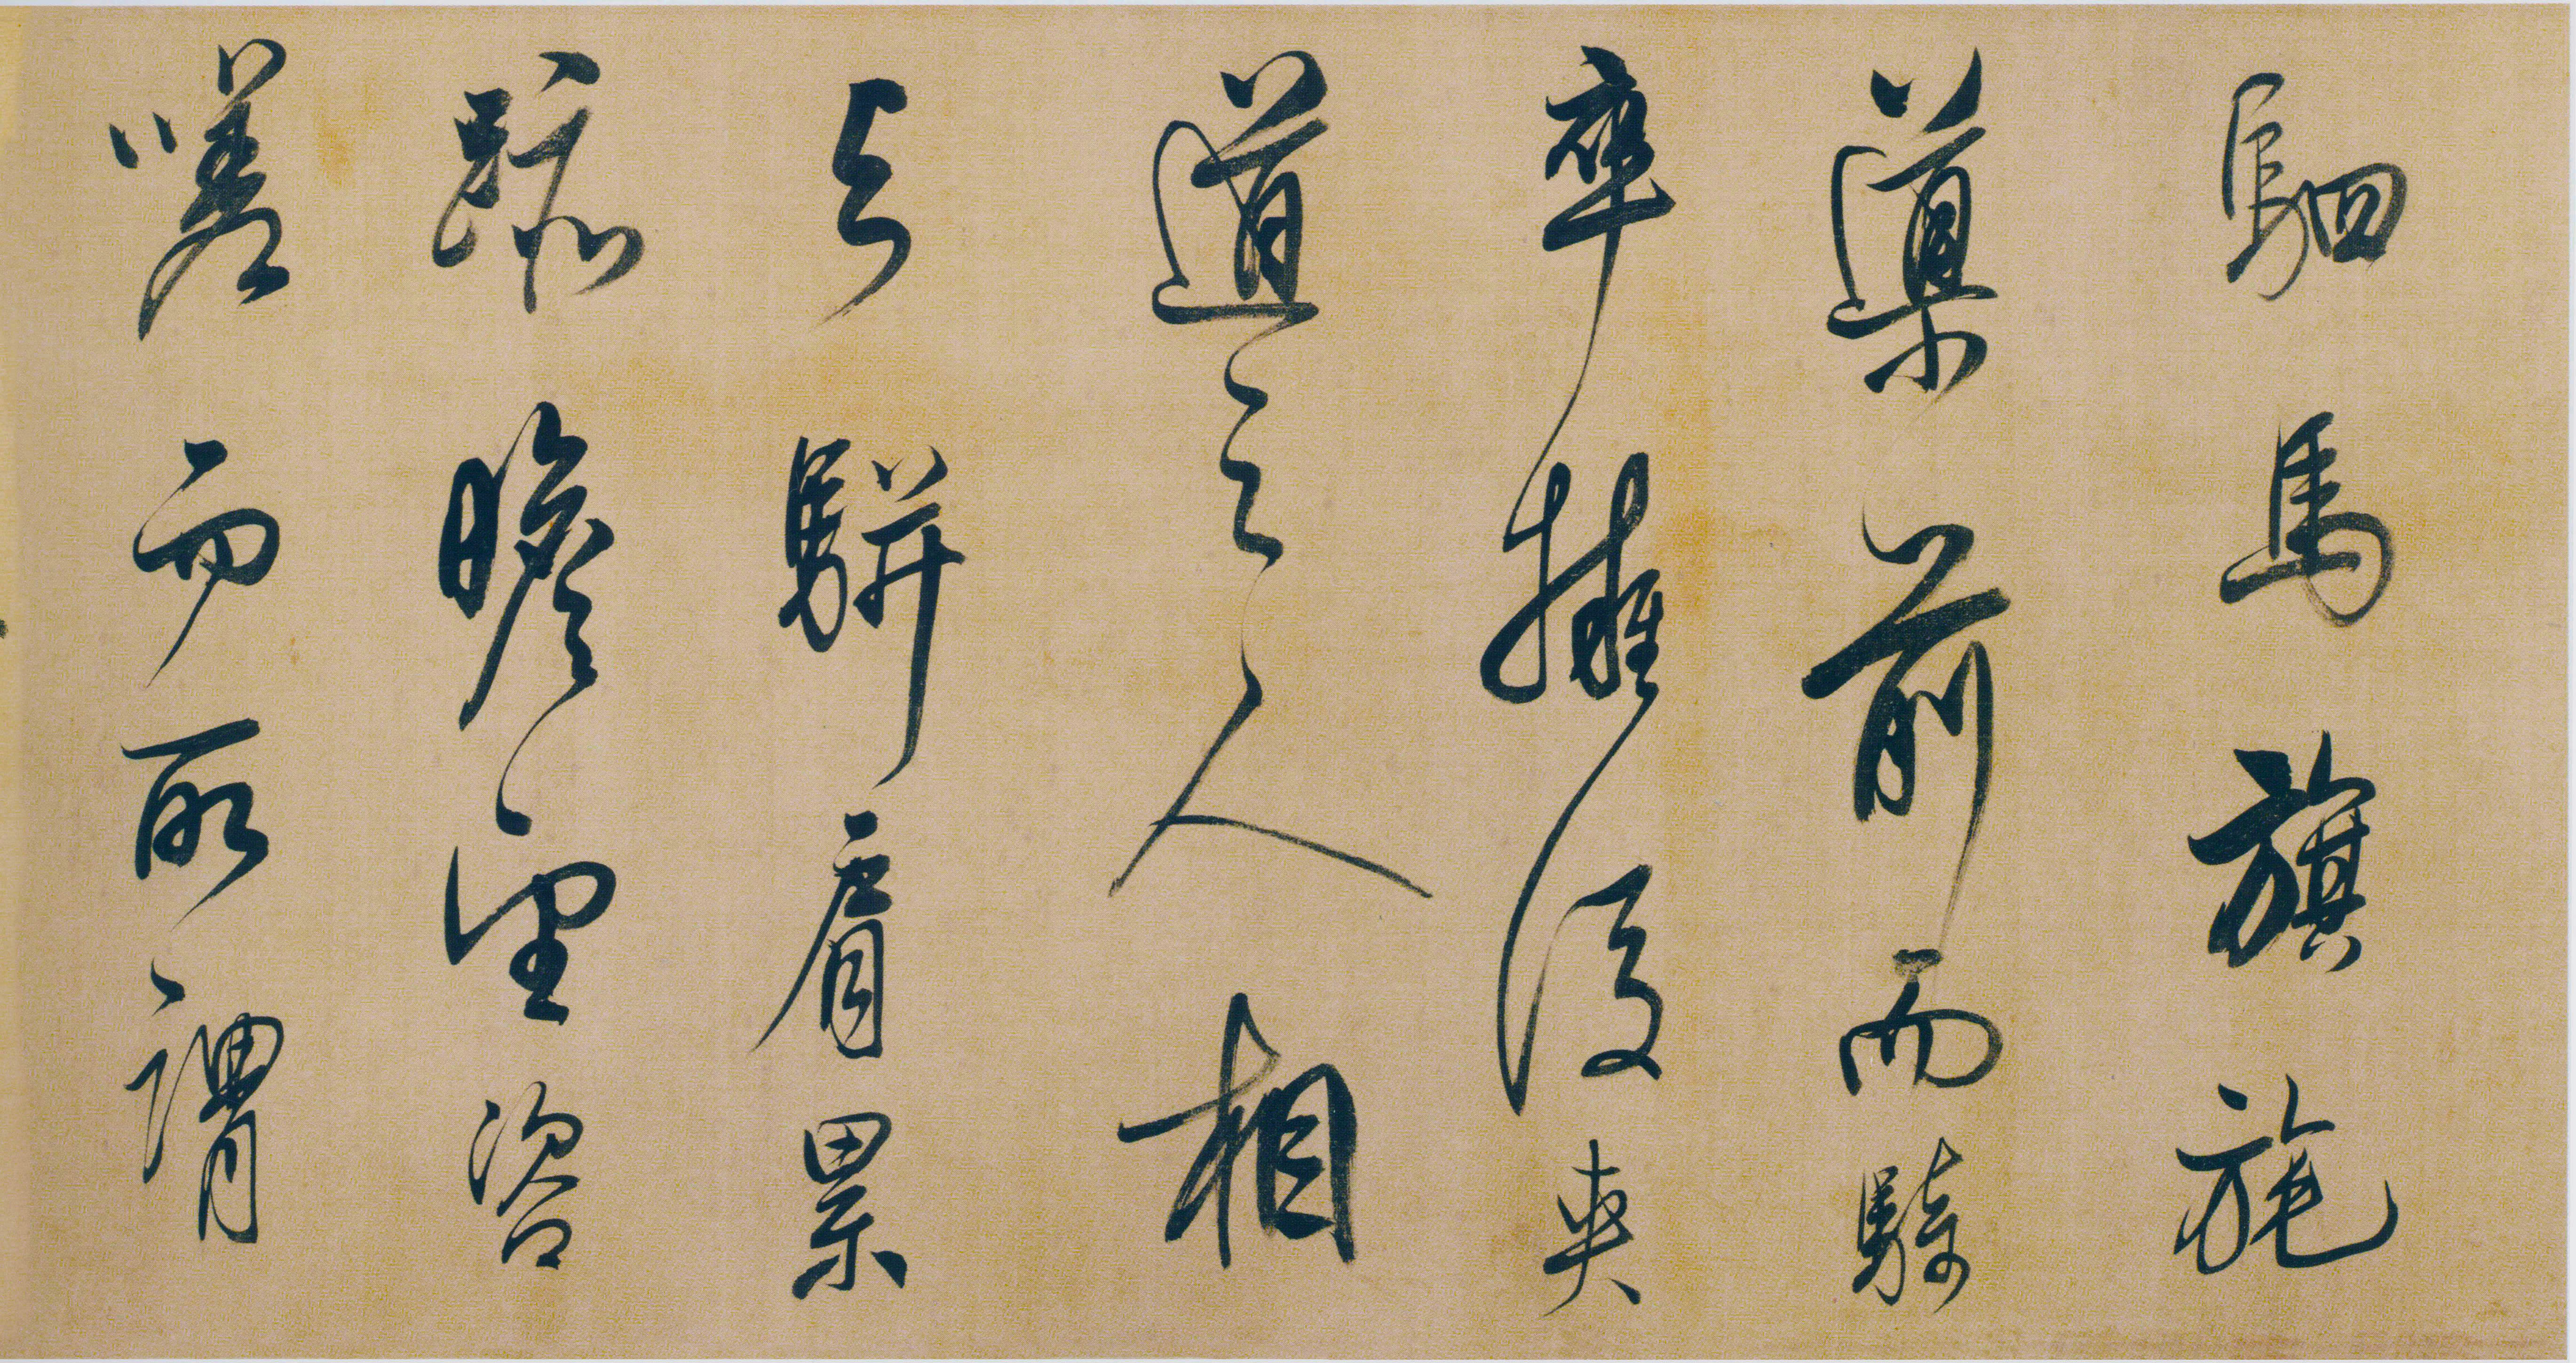 駟馬旗旄
導前而騎
卒擁後夾
道之人相
與駢肩累
跡瞻望咨
嗟而所謂